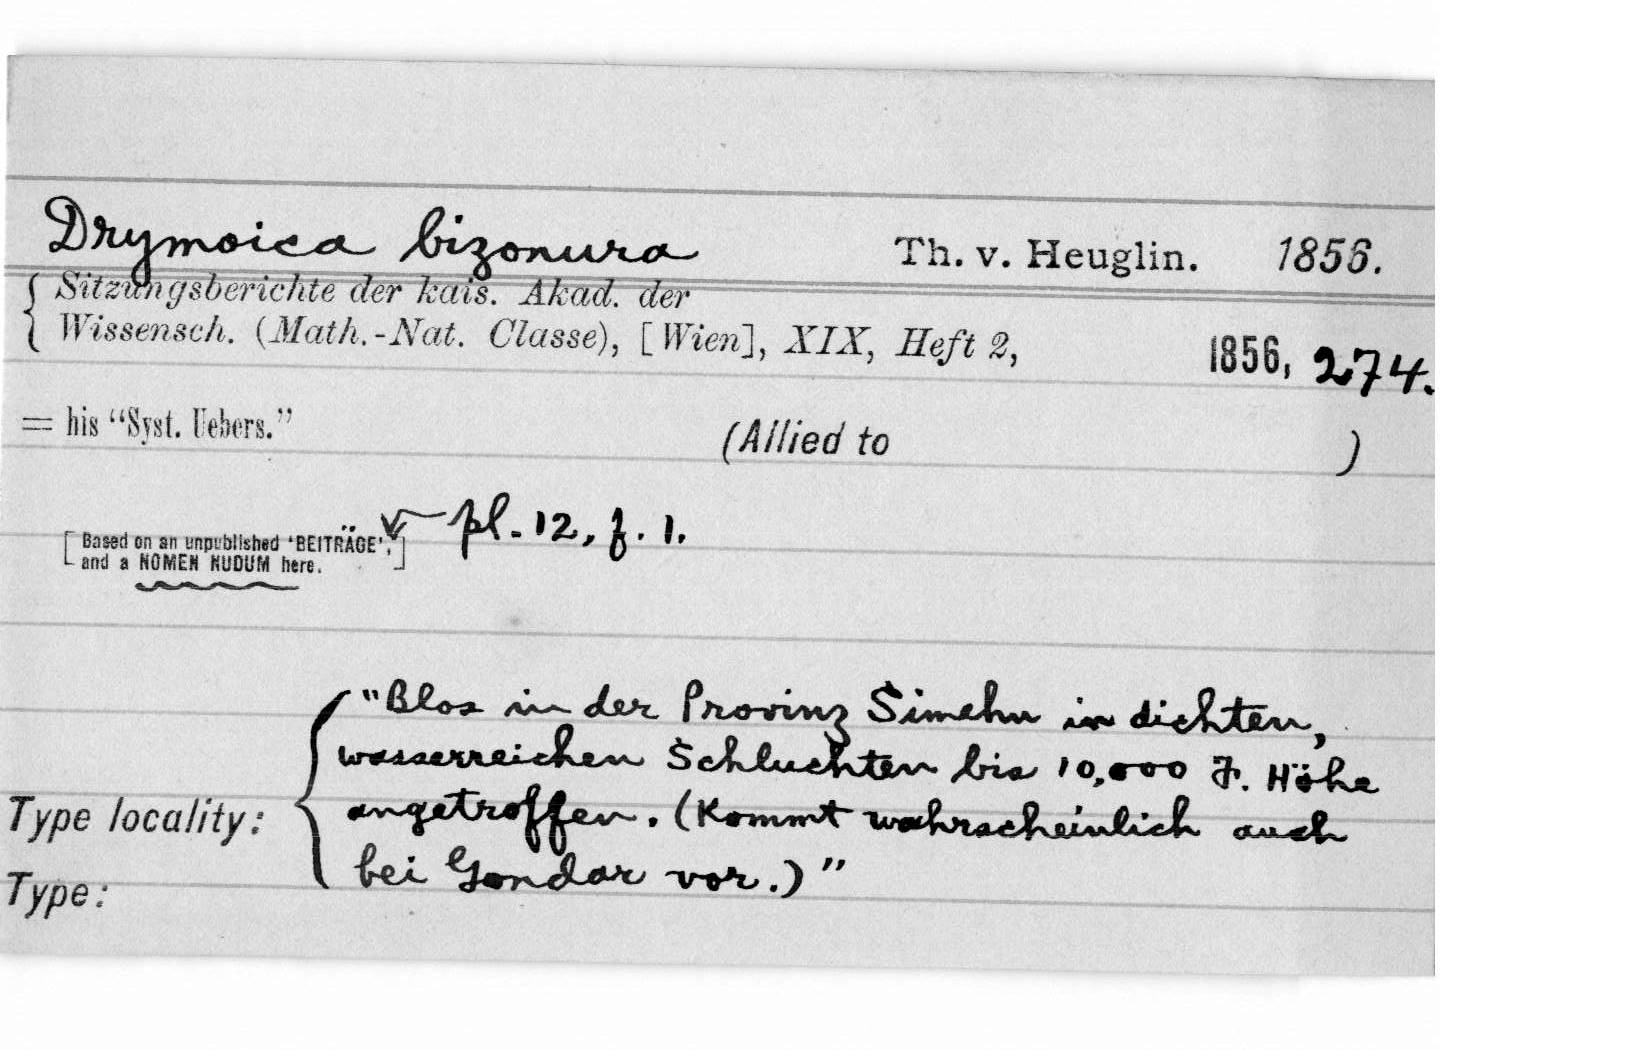 Drymoica bizonura Th. v. Heuglin. 1856.
Sitzungsberichte der kais. Akad. der
Wissensch. (Math.-Nat. Classe), [Wien], XIX, Heft 2, 1856, 274.
= his “Syst. Uebers.” (Allied to )
pl. 12, f. 1.
[Based on an unpublished ‘BEITRÄGE’,]
and a NOMEN NUDUM here.
"Blos in der Provinz Simehn in dichten,
wasserreichen Schluchten bis 10,000 F. Höhe
Type locality: angetroffen. (Kommt wahrscheinlich auch
bei Gondar vor.)"
Type: